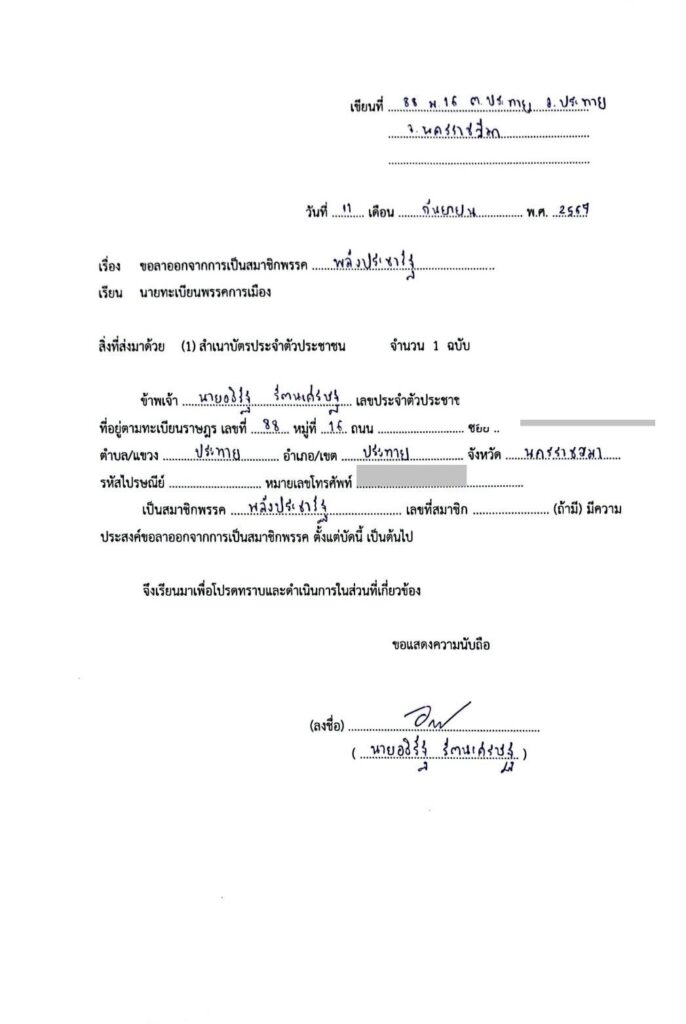 เขียนที่ 88 ม.16 ต.ประทาย อ.ประทาย
จ.นครราชสีมา
วันที่ 11 เดือน กันยายน พ.ศ. 2567
เรื่อง ขอลาออกจากการเป็นสมาชิกพรรค พลังประชารัฐ
เรียน นายทะเบียนพรรคการเมือง
สิ่งที่ส่งมาด้วย (1) สำเนาบัตรประจำตัวประชาชน จำนวน 1 ฉบับ
ข้าพเจ้า นายอธิรัฐ รัตนเศรษฐ เลขประจำตัวประชาช
ที่อยู่ตามทะเบียนราษฎร เลขที่ 88 หมู่ที่ 16 ถนน
ตำบล/แขวง ประทาย อำเภอ/เขต ประทาย จังหวัด นครราชสีมา
รหัสไปรษณีย์ หมายเลขโทรศัพท์
เป็นสมาชิกพรรค พลังประชารัฐ เลขที่สมาชิก (ถ้ามี) มีความ
ประสงค์ขอลาออกจากการเป็นสมาชิกพรรค ตั้งแต่บัดนี้ เป็นต้นไป
จึงเรียนมาเพื่อโปรดทราบและดำเนินการในส่วนที่เกี่ยวข้อง
ขอแสดงความนับถือ
(ลงชื่อ)
( นายอธิรัฐ รัตนเศรษฐ )